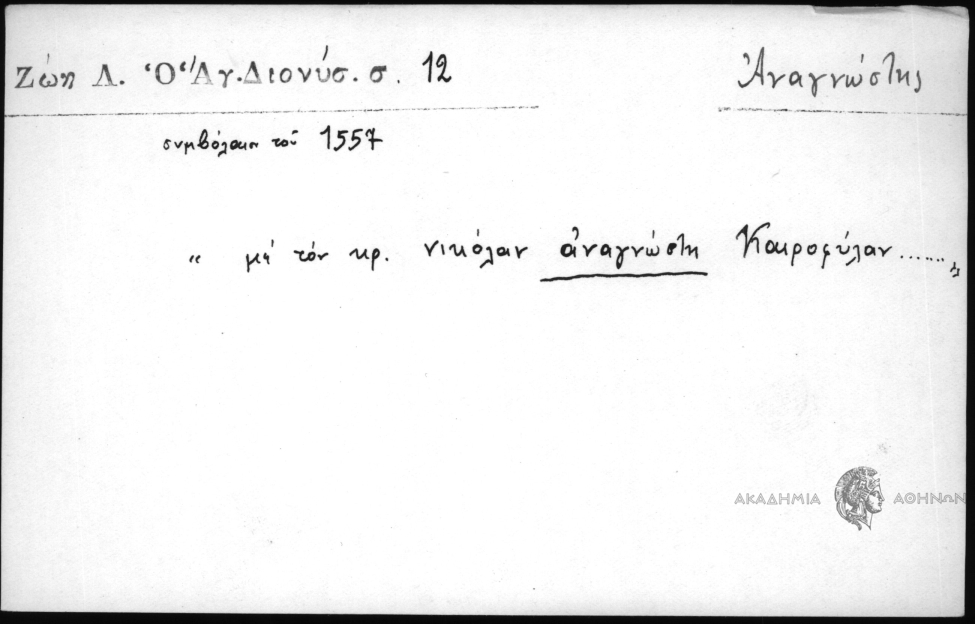 Ζώη Λ. Ὁ Ἅγ. Διονύσ. σ. 12
Ἀναγνώστης
συμβόλαιον τοῦ 1557
“ μὲ τὸν κρ. νικόλαν ἀναγνώστη Καιροφύλαν ......„
ΑΚΑΔΗΜΙΑ ΑΘΗΝΩΝ